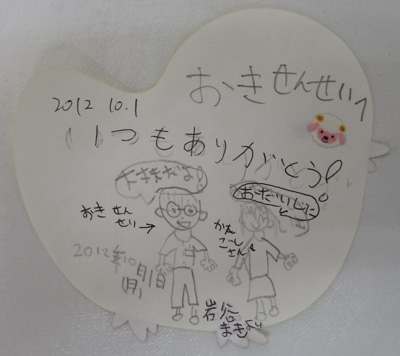 おきせんせいへ
2012 10.1
いつもありがとう!
大好きだよ!
おだいじに
おき せん
せい→
かん
ごし
さん
2012年10
月1日
(月)
岩谷
まきより